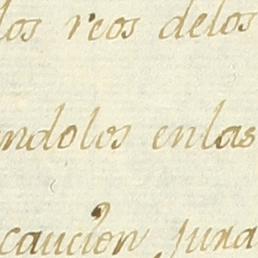 los reos delos
ndolos enlas
caucion jura